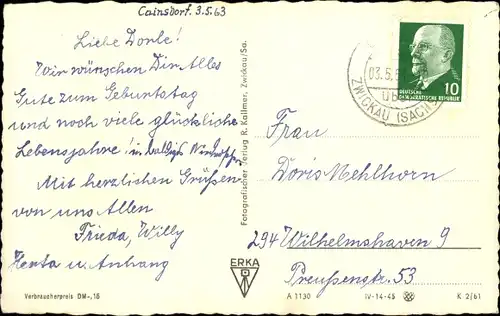 Cainsdorf. 3.5.63
Liebe Dorle!
Wir wünschen Dir Alles
Gute zum Geburtstag
und noch viele glückliche
Lebensjahre! in
Mit herzlichen Grüßen
von uns Allen
Frieda, Willy
Herta u. Anhang
Verbraucherpreis DM -,18
Fotografischer Verlag R. Kallmer, Zwickau/Sa.
ERKA
03.5.
ZWICKAU (SACHS
10
DEUTSCHE
DEMOKRATISCHE REPUBLIK
Frau
Doris Mehlhorn
294 Wilhelmshaven 9
Preußenstr. 53
A 1130
IV-14-45
K 2/61